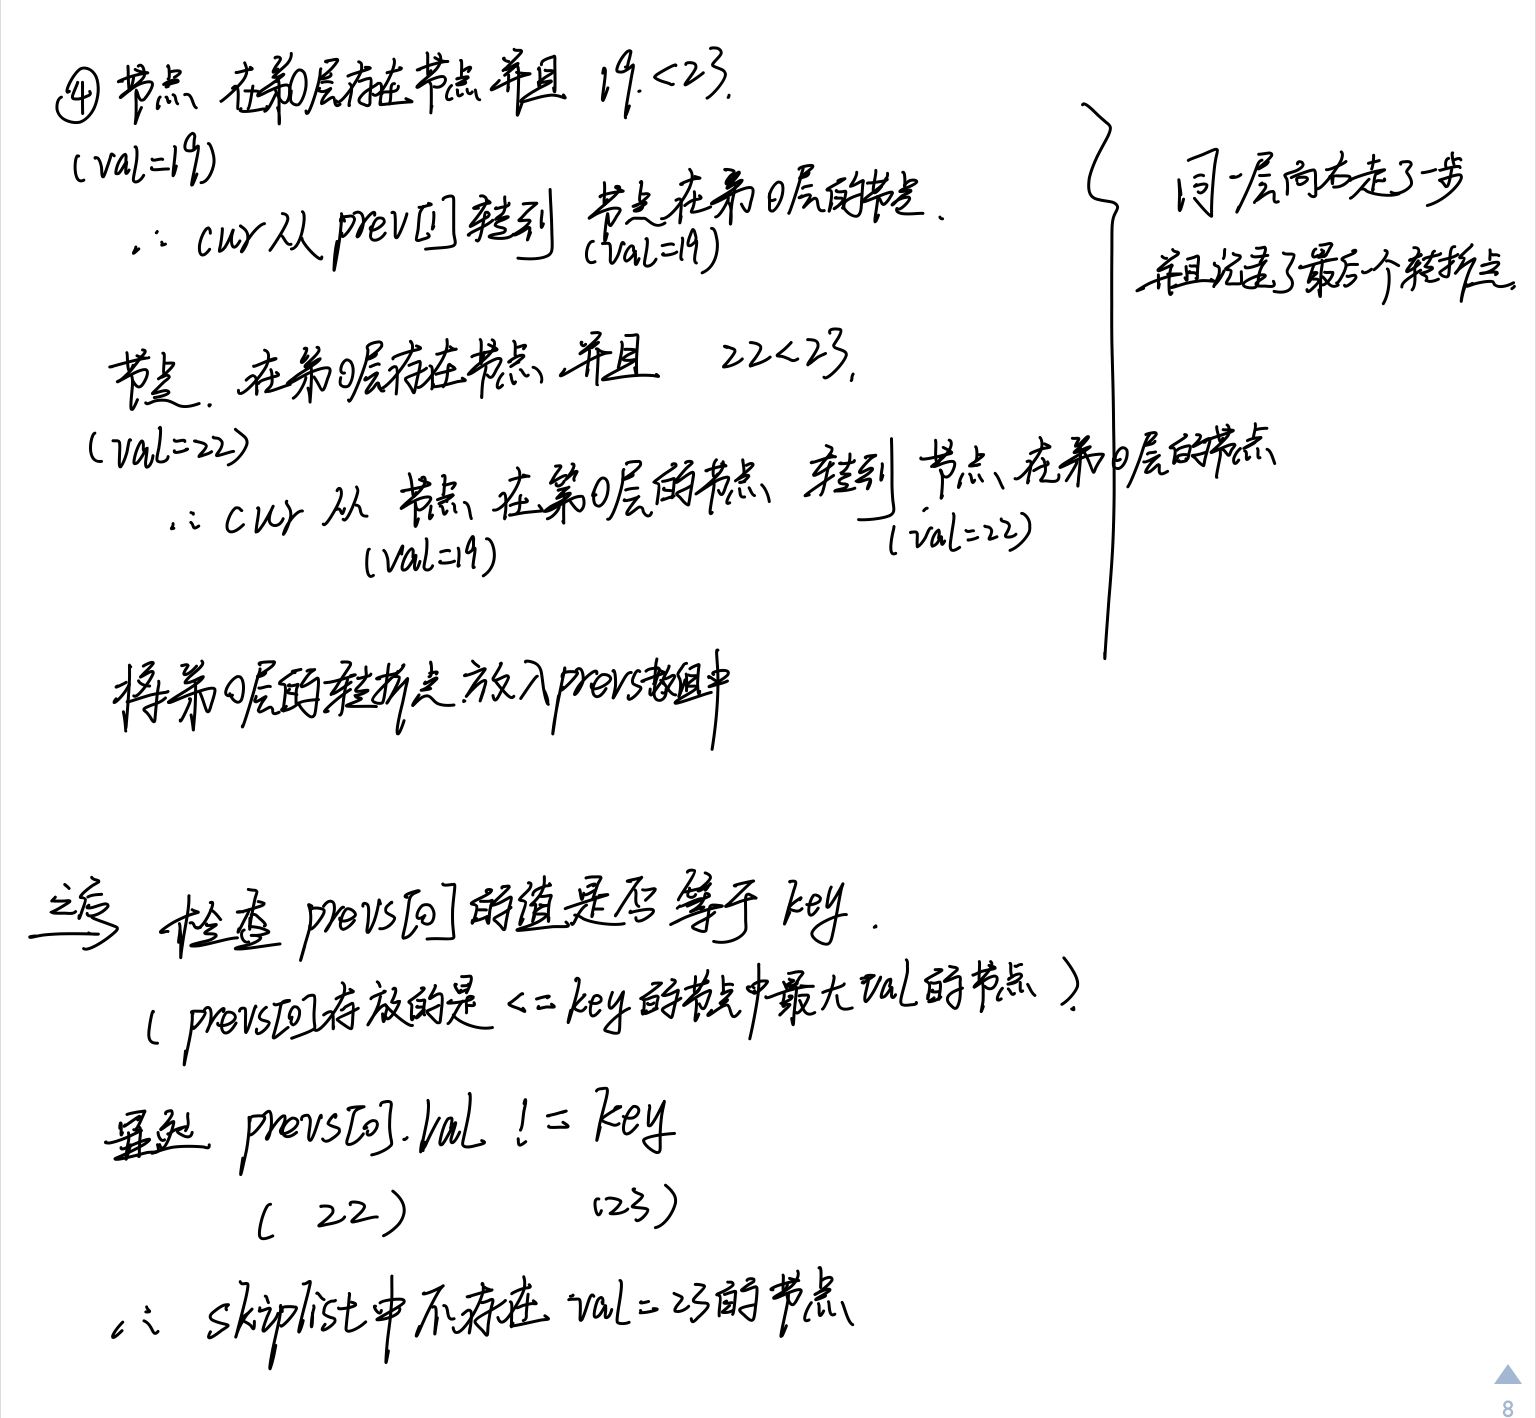 ④ 节点 在第0层存在节点 并且 19<23.
(val=19)
∴ cur从prev[1]转到 节点在第0层的节点.
(val=19)
同一层向右走了一步
并且记录了最后一个转折点.
节点. 在第0层存在节点 并且 22<23.
(val=22)
∴ cur 从 节点 在第0层的节点 转到 节点 在第0层的节点
(val=19) (val=22)
将第0层的转折点放入prevs数组中
之后 检查 prevs[0]的值是否等于 key.
( prevs[0]存放的是 <=key的节点中最大val的节点 )
prevs[0].val != key
( 22 ) (23)
∴ skiplist中不存在 val=23的节点
8